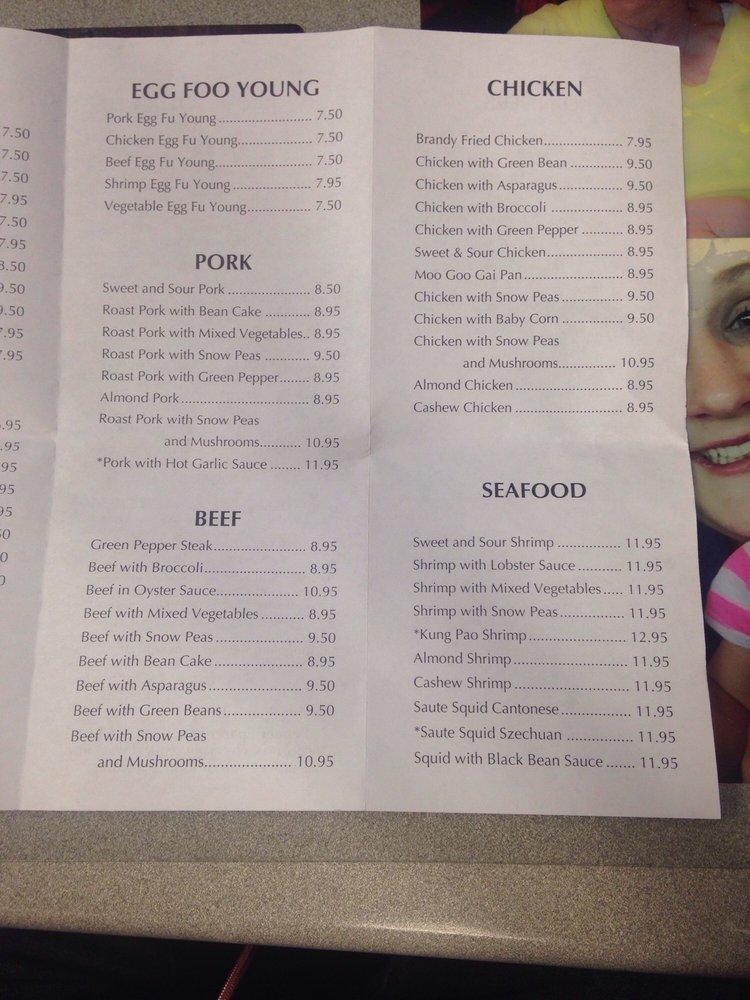 7.50
7.50
7.50
7.95
7.50
7.95
8.50
9.50
9.50
7.95
7.95
.95
.95
95
95
95
50
0
0
EGG FOO YOUNG
Pork Egg Fu Young ........................ 7.50
Chicken Egg Fu Young..................... 7.50
Beef Egg Fu Young......................... 7.50
Shrimp Egg Fu Young ..................... 7.95
Vegetable Egg Fu Young................. 7.50
PORK
Sweet and Sour Pork ..................... 8.50
Roast Pork with Bean Cake ............ 8.95
Roast Pork with Mixed Vegetables.. 8.95
Roast Pork with Snow Peas ............ 9.50
Roast Pork with Green Pepper........ 8.95
Almond Pork ................................. 8.95
Roast Pork with Snow Peas
and Mushrooms.......... 10.95
*Pork with Hot Garlic Sauce ........ 11.95
BEEF
Green Pepper Steak........................ 8.95
Beef with Broccoli.......................... 8.95
Beef in Oyster Sauce..................... 10.95
Beef with Mixed Vegetables ........... 8.95
Beef with Snow Peas ...................... 9.50
Beef with Bean Cake ...................... 8.95
Beef with Asparagus ....................... 9.50
Beef with Green Beans.................... 9.50
Beef with Snow Peas
and Mushrooms...................... 10.95
CHICKEN
Brandy Fried Chicken..................... 7.95
Chicken with Green Bean .............. 9.50
Chicken with Asparagus................. 9.50
Chicken with Broccoli .................. 8.95
Chicken with Green Pepper .......... 8.95
Sweet & Sour Chicken................... 8.95
Moo Goo Gai Pan......................... 8.95
Chicken with Snow Peas ............... 9.50
Chicken with Baby Corn ............... 9.50
Chicken with Snow Peas
and Mushrooms.............. 10.95
Almond Chicken ........................... 8.95
Cashew Chicken ........................... 8.95
SEAFOOD
Sweet and Sour Shrimp ................ 11.95
Shrimp with Lobster Sauce ........... 11.95
Shrimp with Mixed Vegetables ..... 11.95
Shrimp with Snow Peas ................ 11.95
*Kung Pao Shrimp ......................... 12.95
Almond Shrimp ............................. 11.95
Cashew Shrimp ............................. 11.95
Saute Squid Cantonese ................. 11.95
*Saute Squid Szechuan ................. 11.95
Squid with Black Bean Sauce ....... 11.95